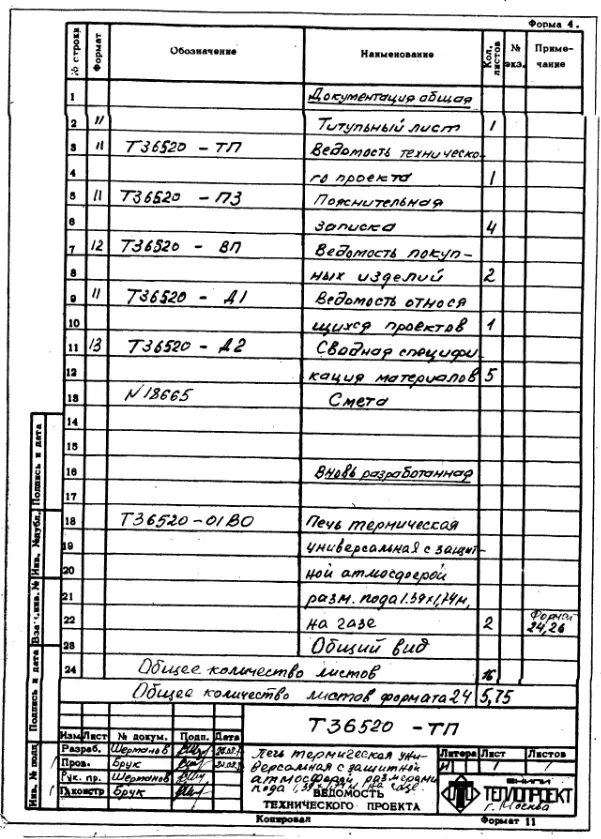 Форма 4.
№ строки Формат Обозначение Наименование Кол. листов № экз. Примечание
1 Документация общая
2 11 Титульный лист 1
3 11 Т36520 - ТП Ведомость техническо-
4 го проекта 1
5 11 Т36520 - ПЗ Пояснительная
6 записка 4
7 12 Т36520 - ВП Ведомость покуп-
8 ных изделий 2
9 11 Т36520 - Д1 Ведомость относя
10 щихся проектов 1
11 13 Т36520 - Д2 Сводная специфи
12 кация материалов 5
13 N 18665 Смета
14
15
16 Вновь разработанная
17
18 Т36520-01ВО Печь термическая
19 универсальная с защит-
20 ной атмосферой
21 разм. пода 1.39х1,74м,
22 на газе 2 Формат 24,26
23 Общий вид
24 Общее количество листов 16
Общее количество листов формата 24 5,75
Т36520 - ТП
Изм. Лист № докум. Подп. Дата
Разраб. Шерманов
Пров. Брук
Рук. пр. Шерманов
Гл.констр Брук
Печь термическая уни-
версальная с защитной
атмосферой размерами
пода 1,39х1,74м на газе.
ВЕДОМОСТЬ
ТЕХНИЧЕСКОГО ПРОЕКТА
Литера Лист Листов
И 1 1
ТЕПЛОПРОЕКТ
г. Москва
Инв. № подл. Подпись и дата Взам.инв. № Инв. №дубл. Подпись и дата
Копировал Формат 11